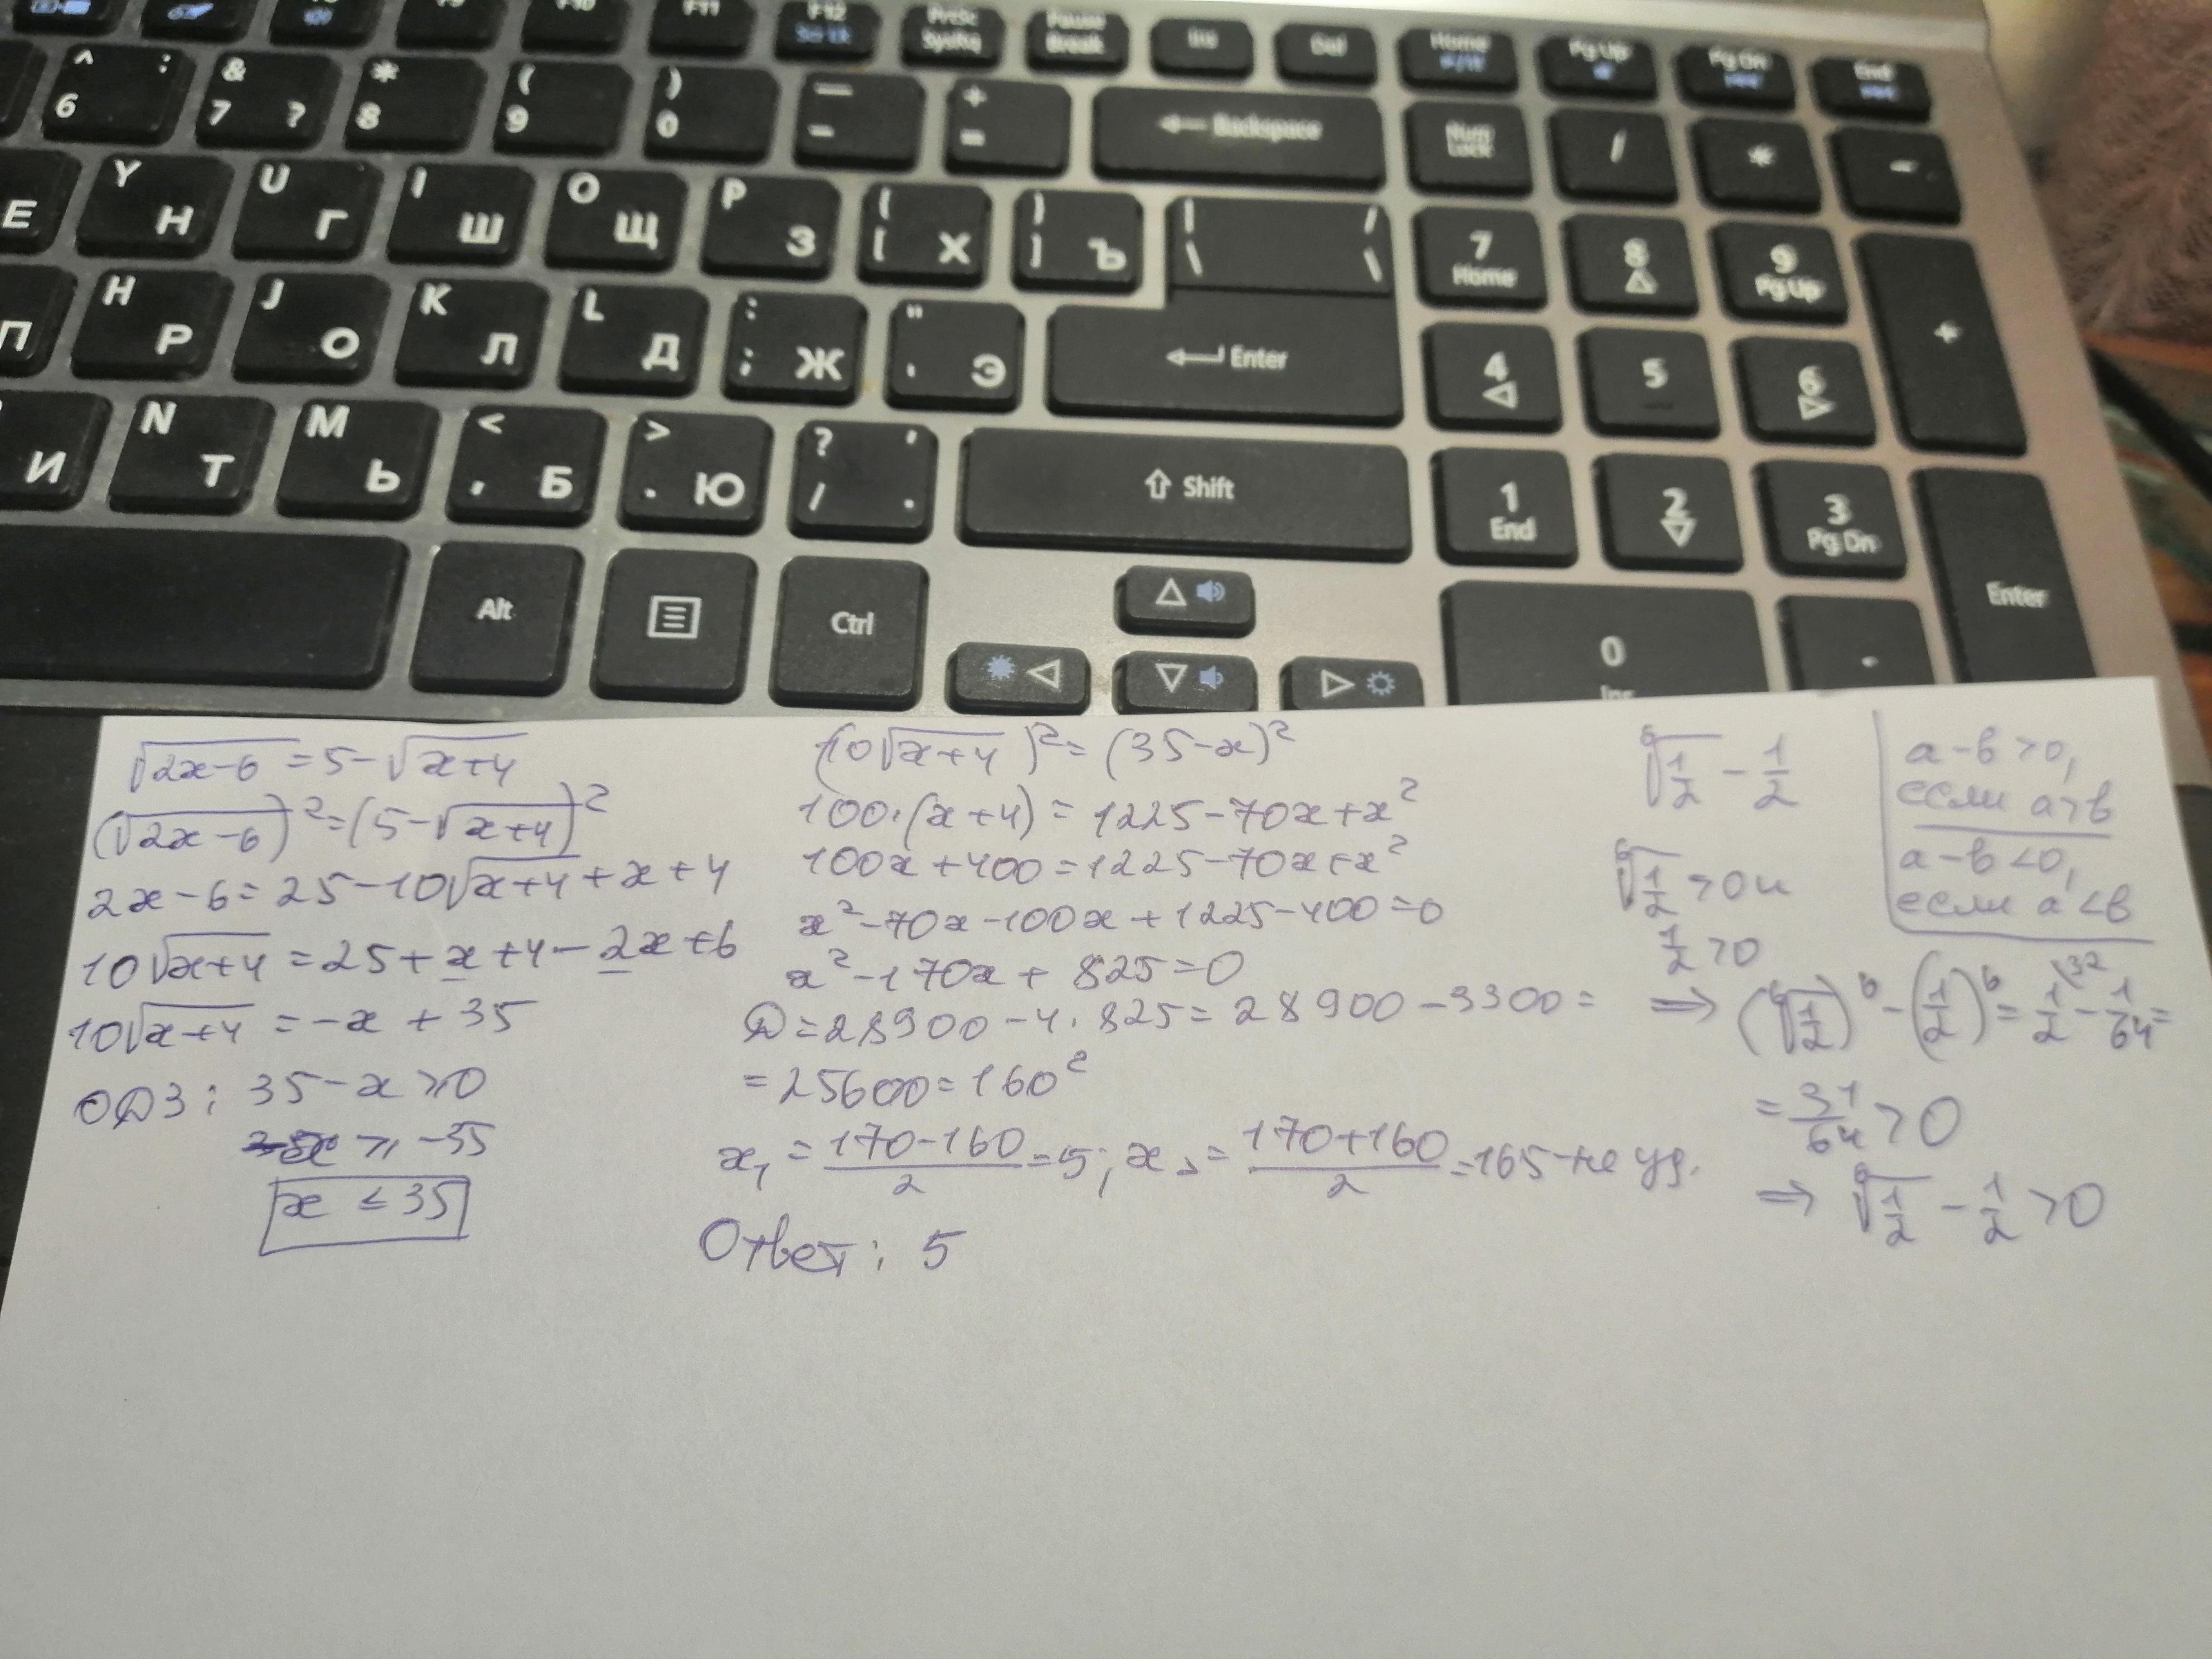 F10 F11 F12 PrtSc Pause Ins Del Home Pg Up Pg Dn End
Scr Lk SysRq Break
^ : 6
& 7 ?
* 8
( 9
) 0
— -
+ =
← Backspace
Num Lock
/
*
-
E
Y Н
U Г
I Ш
O Щ
P З
{ [ Х
} ] Ъ
| \ / \
7 Home
8
9 Pg Up
+
П
H Р
J О
K Л
L Д
: ; Ж
" ' Э
Enter
4
5
6
И
N Т
M Ь
< , Б
> . Ю
? / , .
⇧ Shift
1 End
2
3 Pg Dn
Enter
Alt
Ctrl
0 Ins
.
√(2x-6) = 5-√(x+4)
(√(2x-6))² = (5-√(x+4))²
2x-6 = 25-10√(x+4)+x+4
10√(x+4) = 25+x+4-2x+6
10√(x+4) = -x+35
ОДЗ: 35-x ≥ 0
-x ≥ -35
x ≤ 35
(10√(x+4))² = (35-x)²
100·(x+4) = 1225-70x+x²
100x+400 = 1225-70x+x²
x²-70x-100x+1225-400=0
x²-170x+825=0
D=28900-4·825=28900-3300=
=25600=160²
x₁ = (170-160)/2 = 5; x₂ = (170+160)/2 = 165-не уд.
Ответ: 5
⁶√(1/2) - 1/2
⁶√(1/2) > 0 и
1/2 > 0
⇒ (⁶√(1/2))⁶ - (1/2)⁶ = 1/2 \32 - 1/64 =
= 31/64 > 0
⇒ ⁶√(1/2) - 1/2 > 0
a-b>0,
если a>b
a-b<0,
если a<b